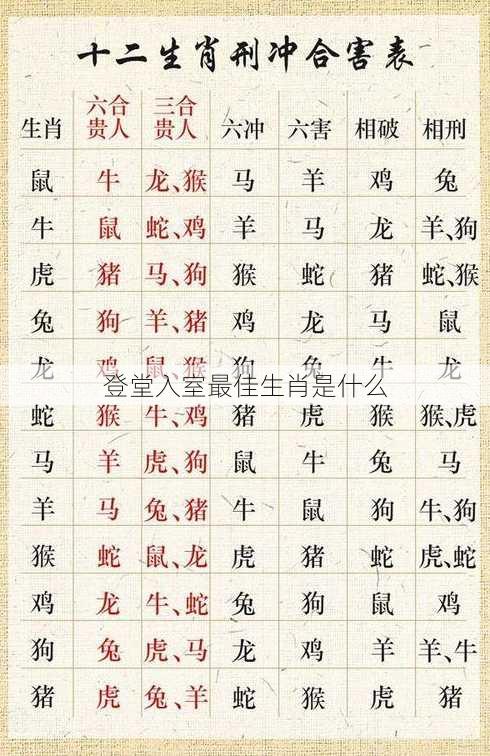 十二生肖刑冲合害表
生肖 六合贵人 三合贵人 六冲 六害 相破 相刑
鼠 牛 龙、猴 马 羊 鸡 兔
牛 鼠 蛇、鸡 羊 马 龙 羊、狗
虎 猪 马、狗 猴 蛇 猪 蛇、猴
兔 狗 羊、猪 鸡 龙 马 鼠
龙 鸡 鼠、猴 狗 兔 牛 龙
登堂入室最佳生肖是什么
蛇 猴 牛、鸡 猪 虎 猴 猴、虎
马 羊 虎、狗 鼠 牛 兔 马
羊 马 兔、猪 牛 鼠 狗 牛、狗
猴 蛇 鼠、龙 虎 猪 蛇 虎、蛇
鸡 龙 牛、蛇 兔 狗 鼠 鸡
狗 兔 虎、马 龙 鸡 羊 羊、牛
猪 虎 兔、羊 蛇 猴 虎 猪